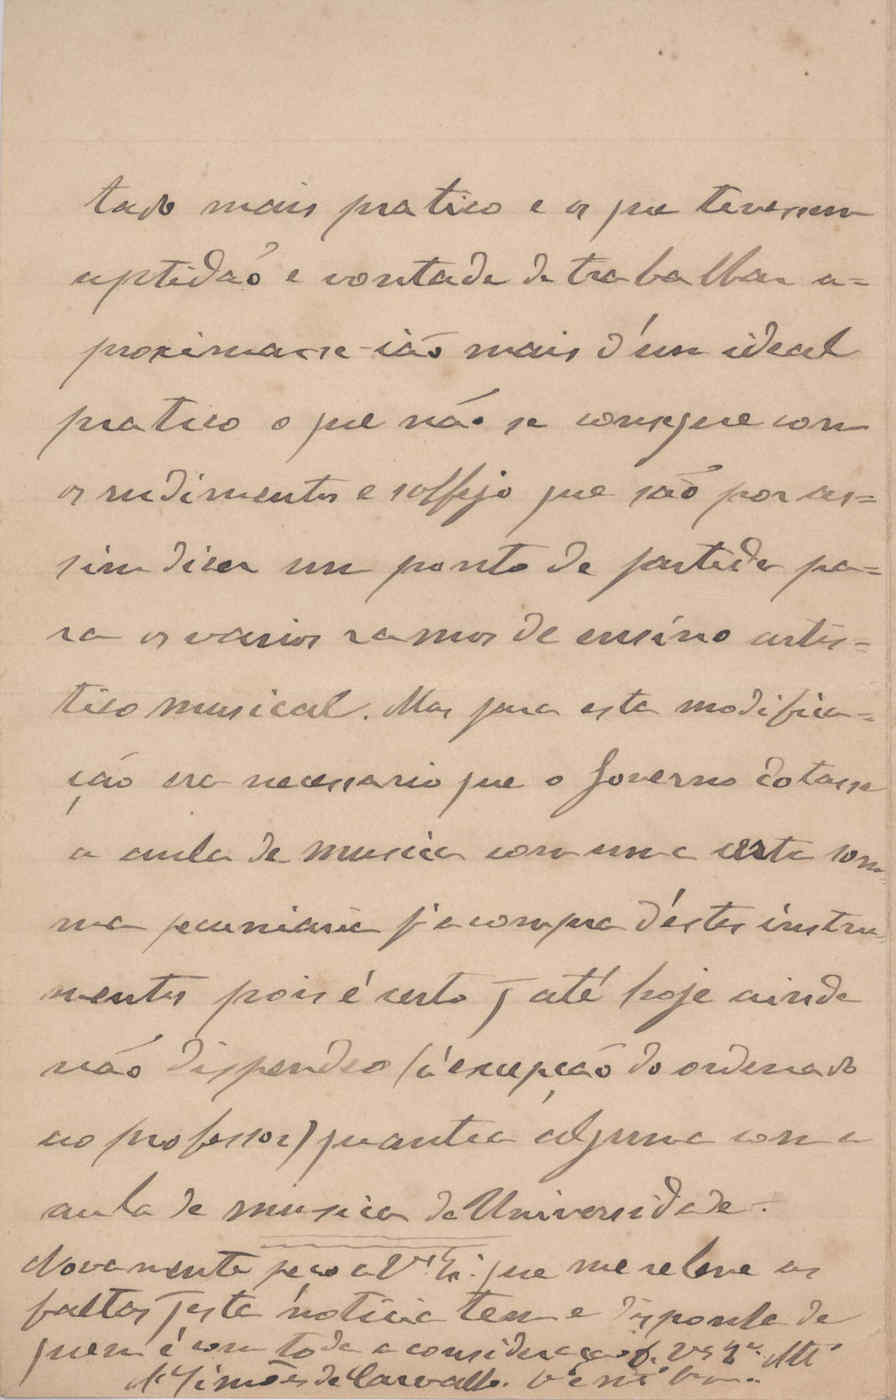 tado mais pratico e os que tivessem
aptidaõ e vontade de trabalhar a=
proximar-se-ião mais d'um ideal
pratico o que não se consegue com
os rudimentos e solfejo que saõ por as=
sim dizer um ponto de partida pa=
ra os varios ramos de ensino artis=
tico musical. Mas para esta modifica=
ção era necessario que o Governo dotasse
a aula de musica com uma certa som=
ma pecuniaria p'a compra d'estes instru=
mentos pois é certo q até hoje ainda
não dispendeo (á excepção do ordenado
ao professor) quantia alguma com a
aula de musica da Universidade.
Novamente peço a V. que me releve as
faltas q esta noticia tem e disponha de
quem é com toda a consideração de Vª
Simões de Carvalho.